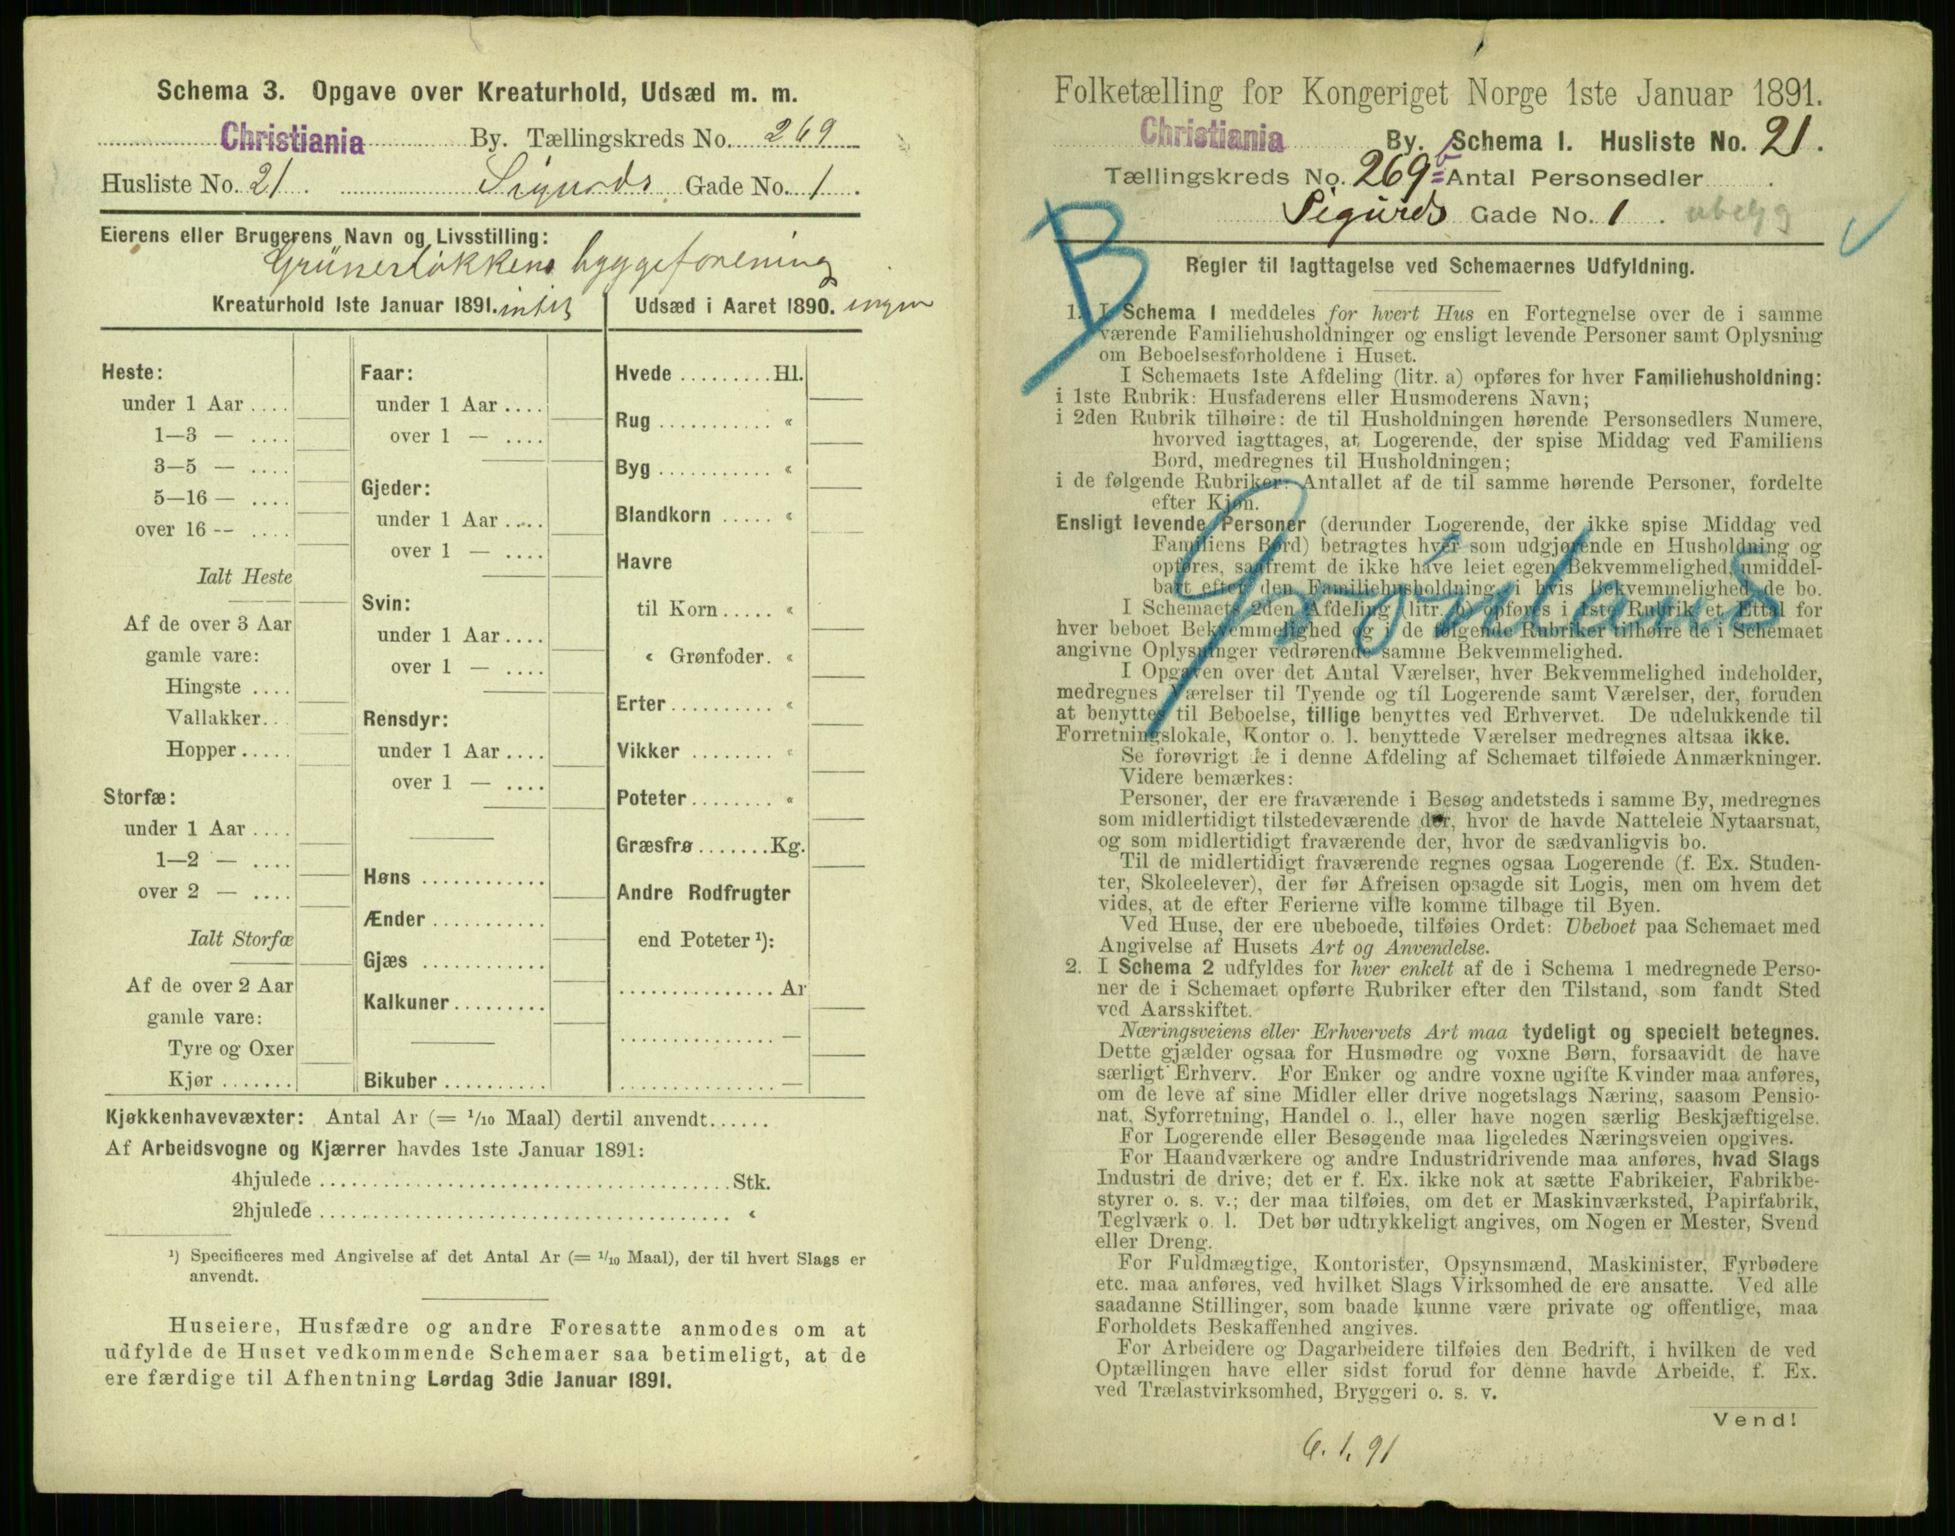 Schema 3. Opgave over Kreaturhold, Udsæd m. m.
Christiania By. Tællingskreds No. 269
Husliste No. 21. Sigurds Gade No. 1.
Eierens eller Brugerens Navn og Livsstilling:
Grünerløkkens byggeforening
Kreaturhold 1ste Januar 1891. intet
Heste:
under 1 Aar ....
1—3 — ....
3—5 — ....
5—16 — ....
over 16 -- ....
Ialt Heste
Af de over 3 Aar
gamle vare:
Hingste ....
Vallakker...
Hopper.....
Storfæ:
under 1 Aar ....
1—2 — ....
over 2 — ....
Ialt Storfæ
Af de over 2 Aar
gamle vare:
Tyre og Oxer
Kjør .......
Faar:
under 1 Aar ....
over 1 — ....
Gjeder:
under 1 Aar ....
over 1 — ....
Svin:
under 1 Aar....
over 1 — ....
Rensdyr:
under 1 Aar....
over 1 — ....
Høns ............
Ænder ...........
Gjæs ............
Kalkuner.........
Bikuber ..........
Udsæd i Aaret 1890. ingen
Hvede .........Hl.
Rug ........... «
Byg ........... «
Blandkorn ..... «
Havre
til Korn..... «
« Grønfoder. «
Erter.......... «
Vikker ........ «
Poteter........ «
Græsfrø.......Kg.
Andre Rodfrugter
end Poteter ¹):
............... Ar
............... —
............... —
Kjøkkenhavevæxter: Antal Ar (= 1/10 Maal) dertil anvendt......
Af Arbeidsvogne og Kjærrer havdes 1ste Januar 1891:
4hjulede .....................................Stk.
2hjulede ..................................... «
¹) Specificeres med Angivelse af det Antal Ar (= 1/10 Maal), der til hvert Slags er
anvendt.
Huseiere, Husfædre og andre Foresatte anmodes om at
udfylde de Huset vedkommende Schemaer saa betimeligt, at de
ere færdige til Afhentning Lørdag 3die Januar 1891.
Folketælling for Kongeriget Norge 1ste Januar 1891.
Christiania By. Schema I. Husliste No. 21.
Tællingskreds No. 269 b Antal Personsedler .
Sigurds Gade No. 1.
B
Regler til Iagttagelse ved Schemaernes Udfyldning.
1. I Schema I meddeles for hvert Hus en Fortegnelse over de i samme
værende Familiehusholdninger og ensligt levende Personer samt Oplysning
om Beboelsesforholdene i Huset.
I Schemaets 1ste Afdeling (litr. a) opføres for hver Familiehusholdning:
i 1ste Rubrik: Husfaderens eller Husmoderens Navn;
i 2den Rubrik tilhøire: de til Husholdningen hørende Personsedlers Numere,
hvorved iagttages, at Logerende, der spise Middag ved Familiens
Bord, medregnes til Husholdningen;
i de følgende Rubriker: Antallet af de til samme hørende Personer, fordelte
efter Kjøn.
Ensligt levende Personer (derunder Logerende, der ikke spise Middag ved
Familiens Bord) betragtes hver som udgjørende en Husholdning og
opføres, saafremt de ikke have leiet egen Bekvemmelighed, umiddel-
bart efter den Familiehusholdning, i hvis Bekvemmelighed de bo.
I Schemaets 2den Afdeling (litr. b) opføres i 1ste Rubrik et Ettal for
hver beboet Bekvemmelighed og i de følgende Rubriker tilhøire de i Schemaet
angivne Oplysninger vedrørende samme Bekvemmelighed.
I Opgaven over det Antal Værelser, hver Bekvemmelighed indeholder,
medregnes Værelser til Tyende og til Logerende samt Værelser, der, foruden
at benyttes til Beboelse, tillige benyttes ved Erhvervet. De udelukkende til
Forretningslokale, Kontor o. l. benyttede Værelser medregnes altsaa ikke.
Se forøvrigt de i denne Afdeling af Schemaet tilføiede Anmærkninger.
Videre bemærkes:
Personer, der ere fraværende i Besøg andetsteds i samme By, medregnes
som midlertidigt tilstedeværende der, hvor de havde Natteleie Nytaarsnat,
og som midlertidigt fraværende der, hvor de sædvanligvis bo.
Til de midlertidigt fraværende regnes ogsaa Logerende (f. Ex. Studen-
ter, Skoleelever), der før Afreisen opsagde sit Logis, men om hvem det
vides, at de efter Ferierne ville komme tilbage til Byen.
Ved Huse, der ere ubeboede, tilføies Ordet: Ubeboet paa Schemaet med
Angivelse af Husets Art og Anvendelse.
2. I Schema 2 udfyldes for hver enkelt af de i Schema 1 medregnede Perso-
ner de i Schemaet opførte Rubriker efter den Tilstand, som fandt Sted
ved Aarsskiftet.
Næringsveiens eller Erhvervets Art maa tydeligt og specielt betegnes.
Dette gjælder ogsaa for Husmødre og voxne Børn, forsaavidt de have
særligt Erhverv. For Enker og andre voxne ugifte Kvinder maa anføres,
om de leve af sine Midler eller drive nogetslags Næring, saasom Pensio-
nat, Syforretning, Handel o. l., eller have nogen særlig Beskjæftigelse.
For Logerende eller Besøgende maa ligeledes Næringsveien opgives.
For Haandværkere og andre Industridrivende maa anføres, hvad Slags
Industri de drive; det er f. Ex. ikke nok at sætte Fabrikeier, Fabrikbe-
styrer o. s. v.; der maa tilføies, om det er Maskinværksted, Papirfabrik,
Teglværk o. l. Det bør udtrykkeligt angives, om Nogen er Mester, Svend
eller Dreng.
For Fuldmægtige, Kontorister, Opsynsmænd, Maskinister, Fyrbødere
etc. maa anføres, ved hvilket Slags Virksomhed de ere ansatte. Ved alle
saadanne Stillinger, som baade kunne være private og offentlige, maa
Forholdets Beskaffenhed angives.
For Arbeidere og Dagarbeidere tilføies den Bedrift, i hvilken de ved
Optællingen have eller sidst forud for denne havde Arbeide, f. Ex.
ved Trælastvirksomhed, Bryggeri o. s. v.
Vend!
6. 1. 91